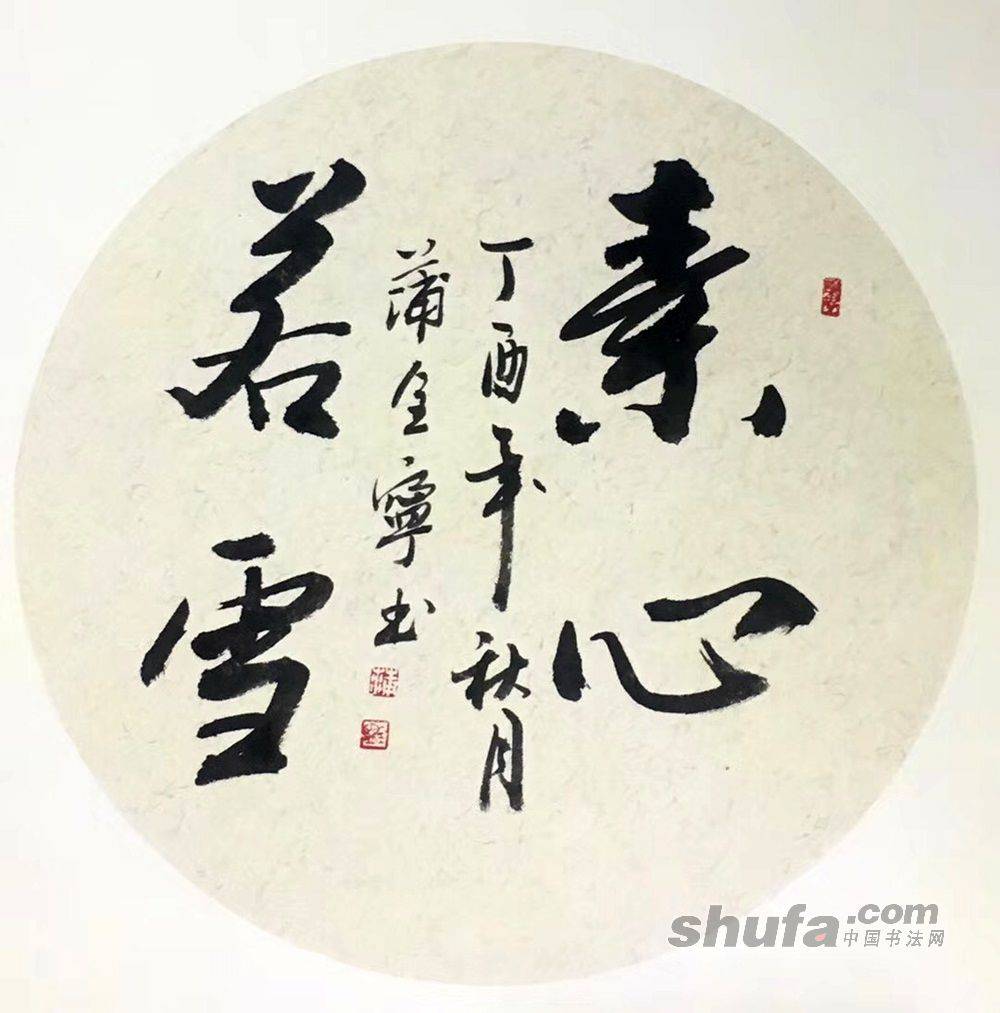 素心
若雪
丁酉年秋月
蒲全宁书
shufa.com
中国书法网